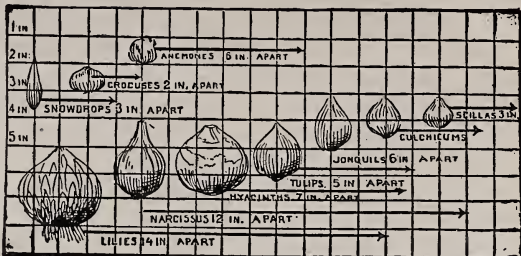 1 IN
2 IN.
ANEMONES 6 IN. APART
3 IN
CROCUSES 2 IN. APART
4 IN
SNOWDROPS 3 IN APART
SCILLAS 3 IN.
CULCHICUMS
5 IN
JONQUILS 6 IN APART
TULIPS. 5 IN APART
HYACINTHS. 7 IN. APART
NARCISSUS 12 IN. APART
LILIES 14 IN. APART